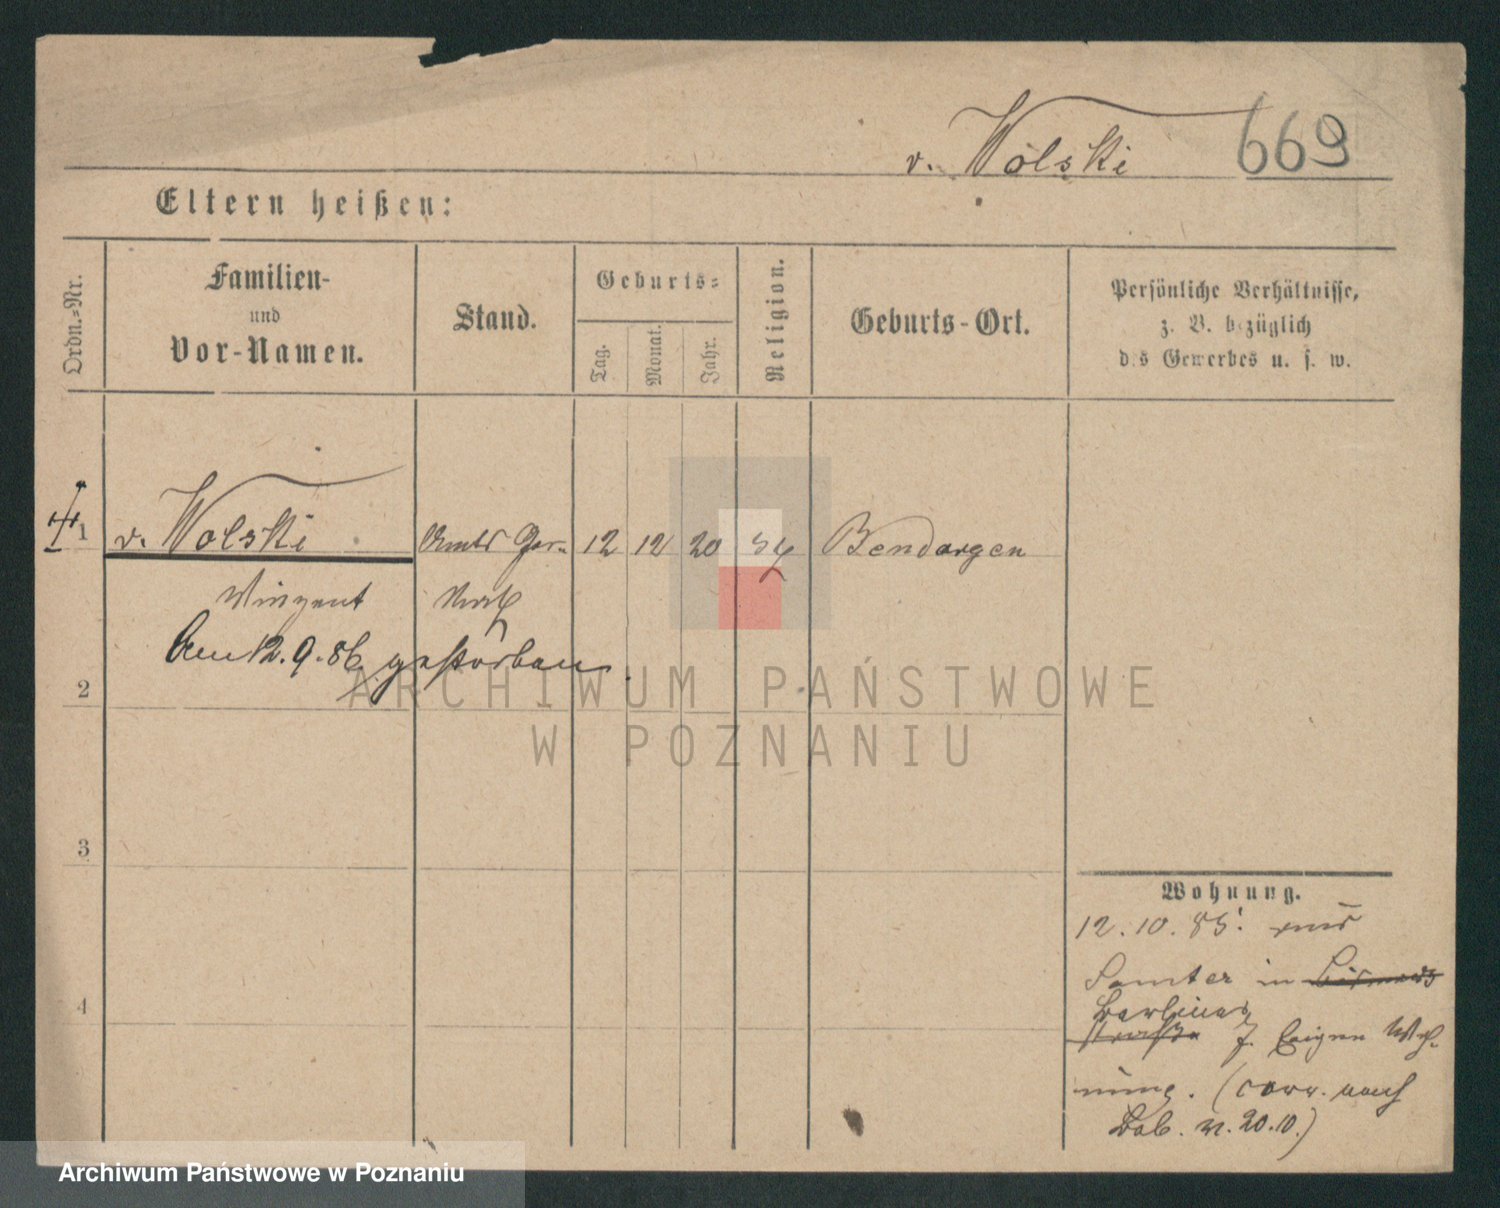 v. Wolski 669
Eltern heißen:
Ordn.-Nr.
Familien-
und
Vor-Namen.
Stand.
Geburts-
Tag.
Monat.
Jahr.
Religion.
Geburts-Ort.
Persönliche Verhältnisse,
z. B. bezüglich
des Gewerbes u. s. w.
1 v. Wolski Amts Ger- 12 12 20 Bendargen
Winzent
Am 12.9.86 gestorben.
2
3
4
Wohnung.
12.10.85. aus
Samter in Bismark
Berliner
straße 7. Eigne Woh-
nung. (corr. nach
Bab. v. 20.10.)
ARCHIWUM PAŃSTWOWE
W POZNANIU
Archiwum Państwowe w Poznaniu